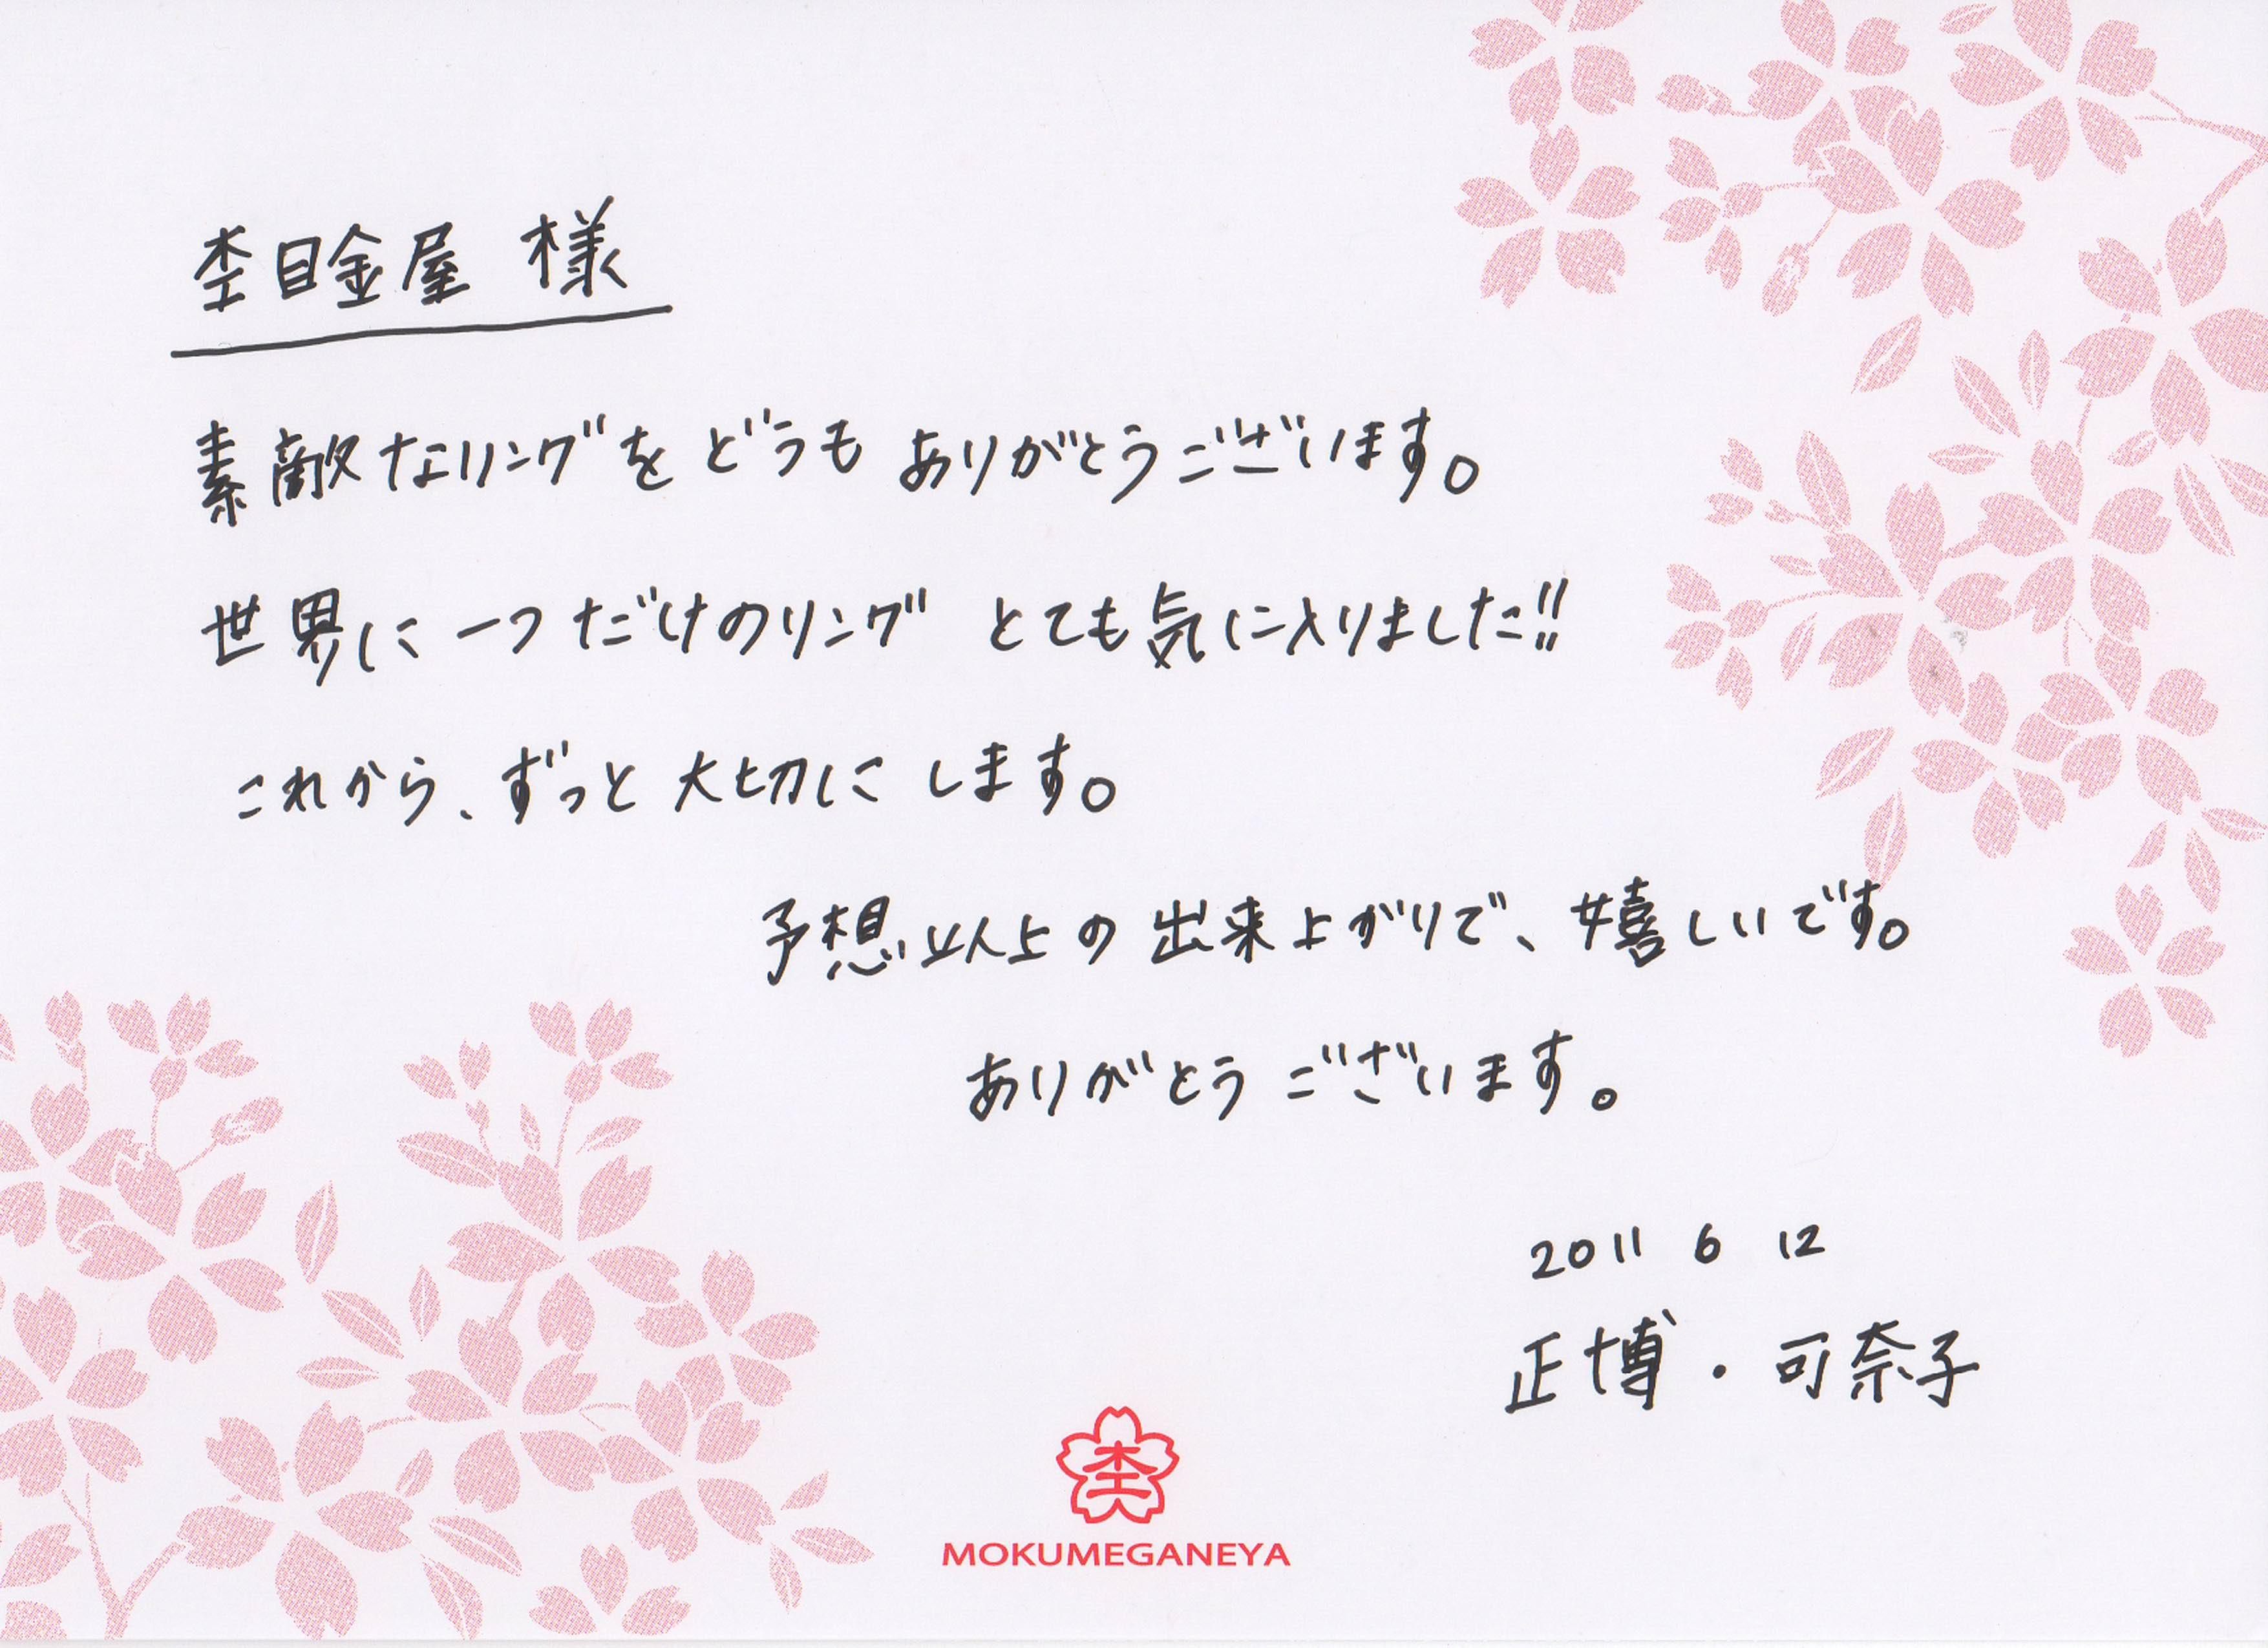 杢目金屋 様
素敵なリングをどうもありがとうございます。
世界に一つだけのリング とても気に入りました!!
これから、ずっと大切にします。
予想以上の出来上がりで、嬉しいです。
ありがとうございます。
2011 6 12
正博・可奈子
杢
MOKUMEGANEYA